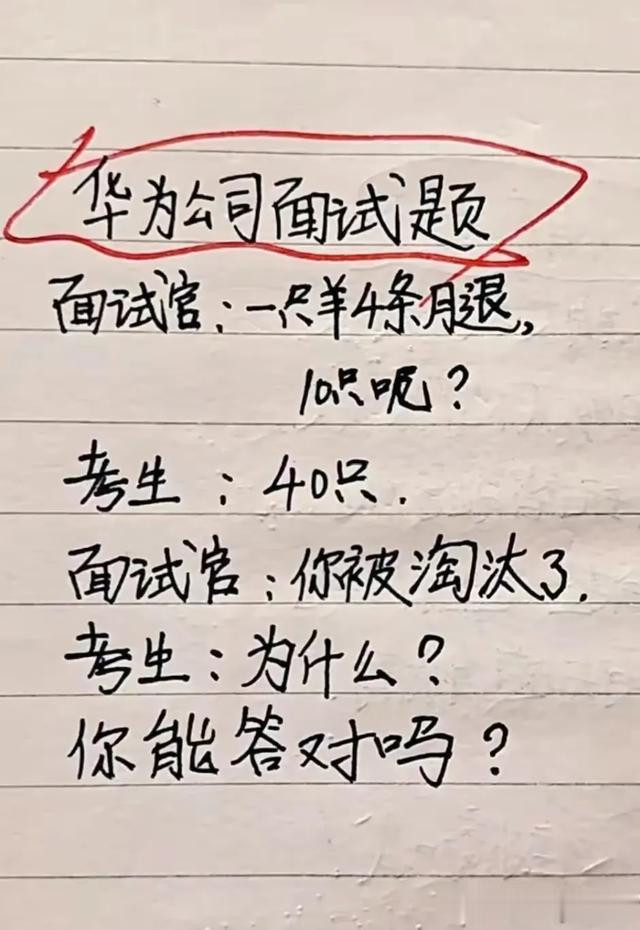 华为公司面试题
面试官：一只羊4条腿，
10只呢？
考生：40只.
面试官：你被淘汰了.
考生：为什么？
你能答对吗？